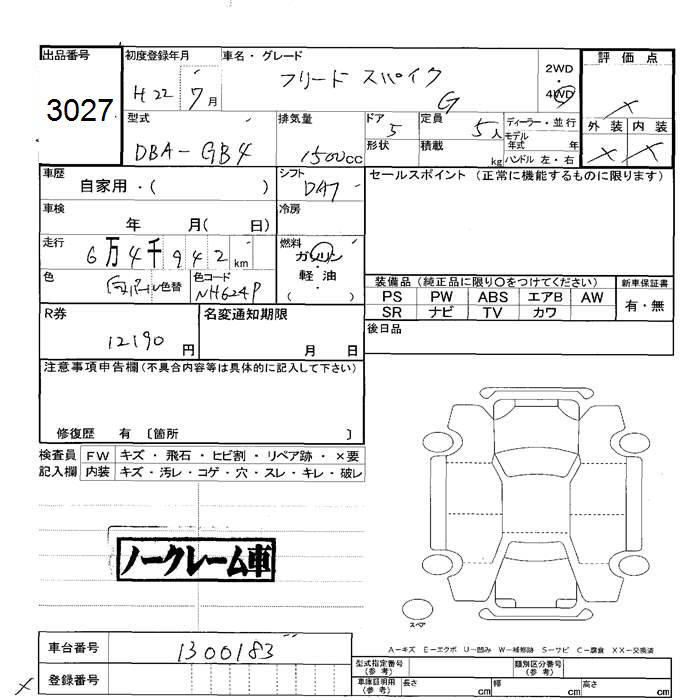 出品番号
3027
初度登録年月
H22 7月
車名・グレード
フリード スパイク
G
2WD
・
4WD
評価点
×
外装 内装
× ×
型式
DBA-GB4
排気量
1500cc
ドア 5
形状
定員 5人
積載 kg
ディーラー・並行
モデル
年式 年
ハンドル 左・右
車歴
自家用・( )
シフト
DA7
セールスポイント (正常に機能するものに限ります)
車検
年 月( 日)
冷房
走行
6万4千942km
燃料
ガソリン
軽・油
( )
色
色替
色コード
NH624P
装備品 (純正品に限り〇をつけてください)
PS PW ABS エアB AW
SR ナビ TV カワ
新車保証書
有・無
R券
12190円
名変通知期限
月 日
後日品
注意事項申告欄(不具合内容等は具体的に記入して下さい)
修復歴 有 〔箇所 〕
検査員
記入欄
FW キズ・飛石・ヒビ割・リペア跡・×要
内装 キズ・汚レ・コゲ・穴・スレ・キレ・破レ
ノークレーム車
スペア
A-キズ E-エクボ U-凹み W-補修跡 S-サビ C-腐食 XX-交換済
車台番号
1300183
登録番号
×
型式指定番号
(参考)
類別区分番号
(参考)
車庫証明用
(参考)
長さ cm 幅 cm 高さ cm